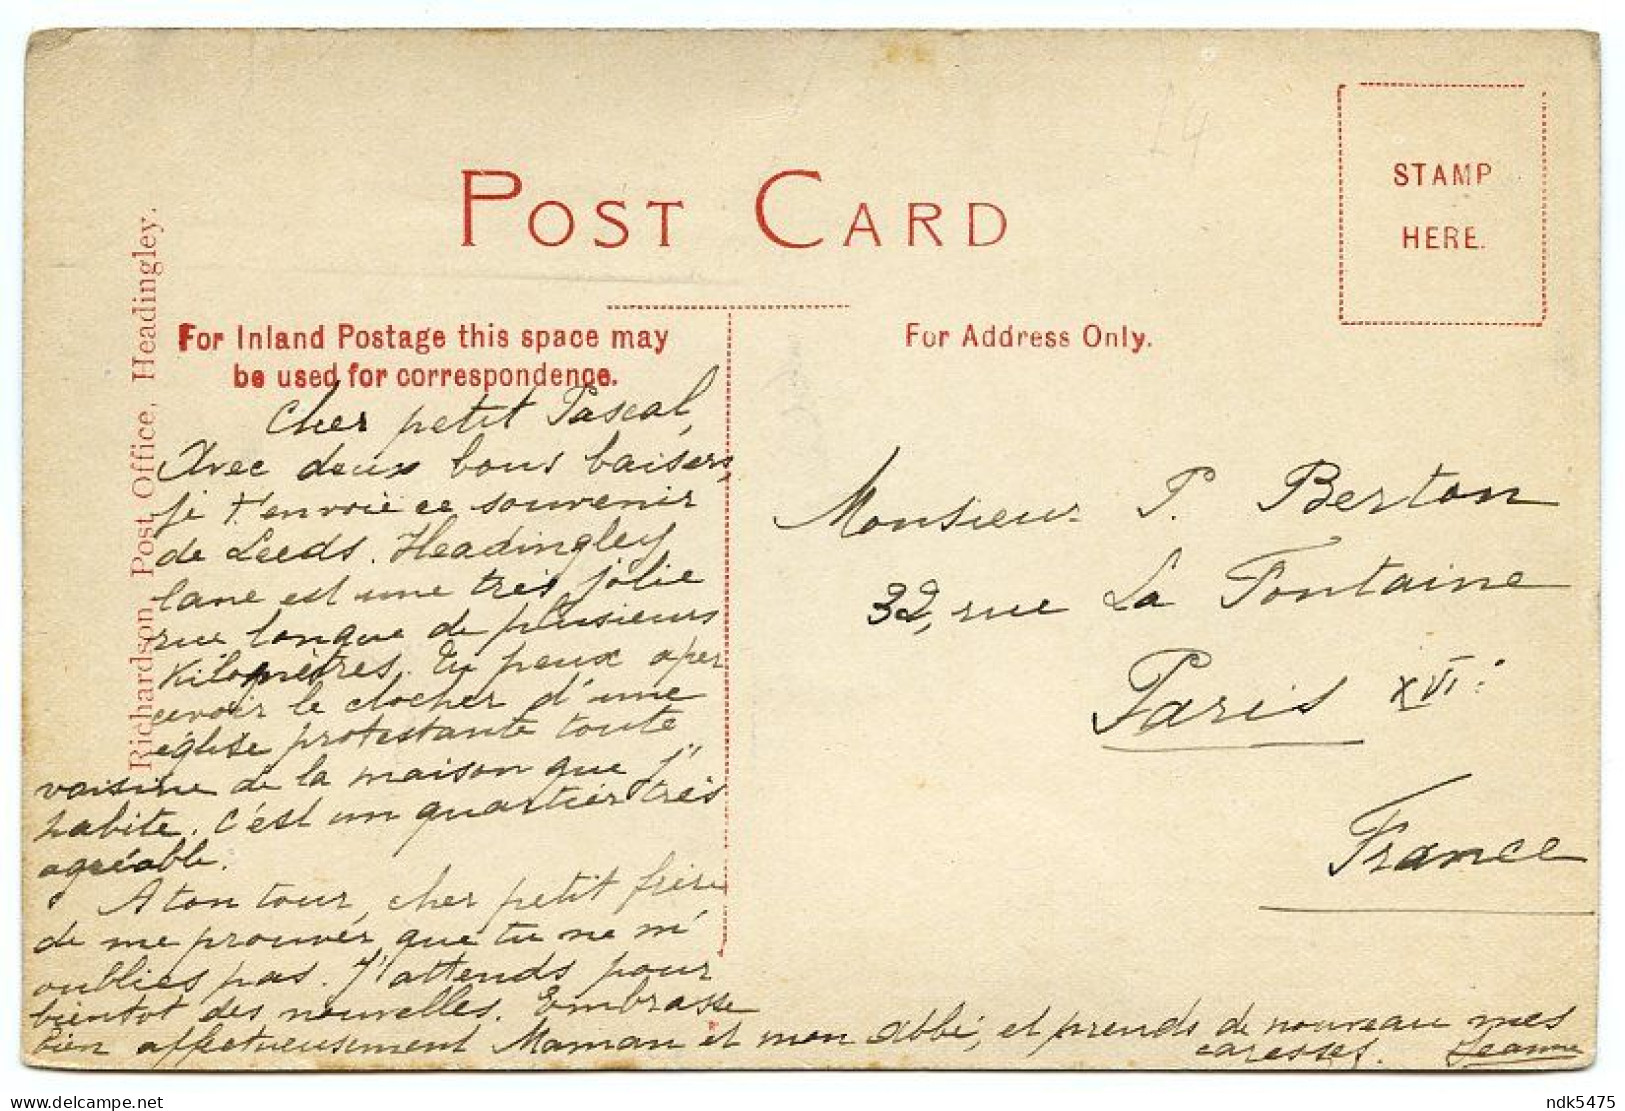 POST CARD
STAMP
HERE.
Richardson, Post Office, Headingley.
For Inland Postage this space may
be used for correspondence.
For Address Only.
£4
Cher petit Pascal,
Avec deux bons baisers,
je t'envoie ce souvenir
de Leeds. Headingley
lane est une très jolie
rue longue de plusieurs
Kilomètres. Tu peux aper
cevoir le clocher d'une
église protestante toute
voisine de la maison que j'
habite. C'est un quartier très
agréable.
A ton tour, cher petit frère
de me prouver que tu ne m'
oublies pas. J'attends pour
bientôt des nouvelles. Embrasse
bien affectueusement Maman et mon abbé, et prends de nouveau mes
caresses. Jeanne
Monsieur P. Berton
32, rue La Fontaine
Paris XVI
France
delcampe.net
ndk5475